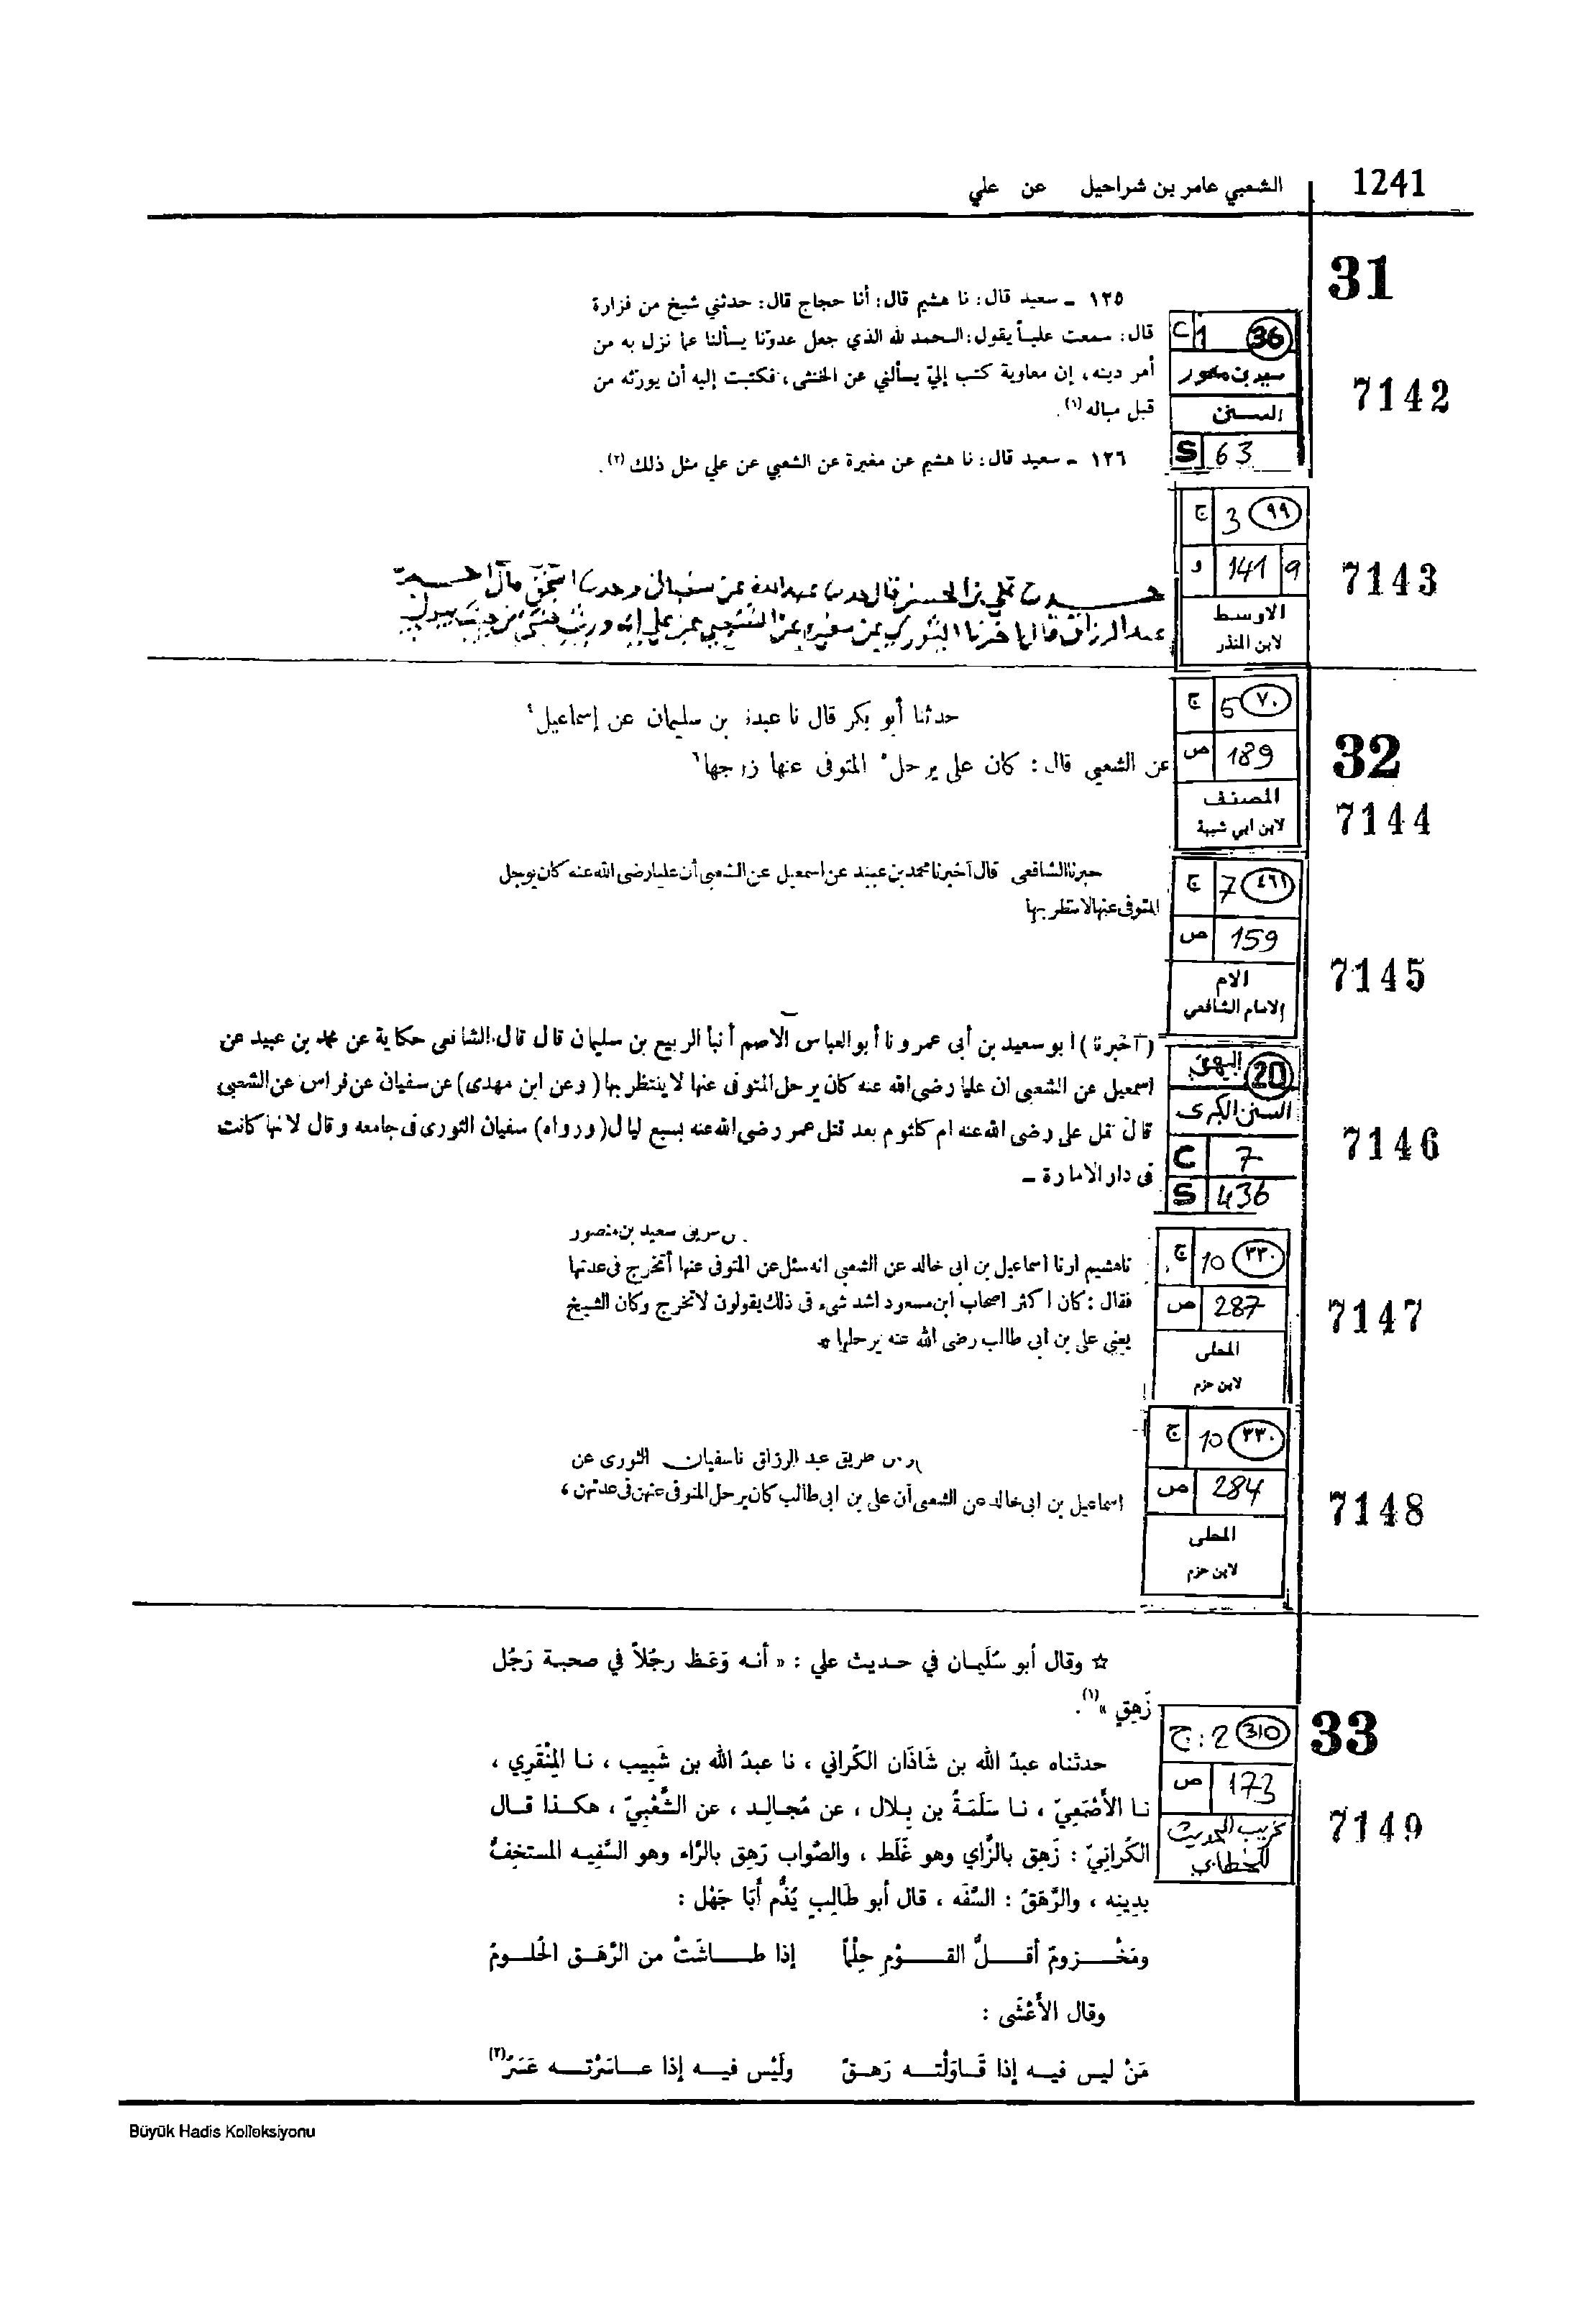 1241 الشعبي عامر بن شراحيل عن علي
31
١٢٥ - سعيد قال: نا هشيم قال: أنا حجاج قال: حدثني شيخ من فزارة
قال: سمعت علياً يقول: الحمد لله الذي جعل عدوّنا يسألنا عما نزل به من
أمر دينه، إن معاوية كتب إليّ يسألني عن الخنثى، فكتبت إليه أن يورّثه من
قبل مباله (١).
١٢٦ - سعيد قال: نا هشيم عن مغيرة عن الشعبي عن علي مثل ذلك (٢).
C 1 36
السنن
S 63
7142
ج 3 ٩٩
و 141 9
الاوسط
لابن المنذر
7143
عبد الرزاق قال اخبرنا الثوري عن مغيرة عن الشعبي عن علي انه ورث خنثى من حيث يبول
32
حدثنا أبو بكر قال نا عبدة بن سليمان عن إسماعيل٤
عن الشعبي قال : كان على يرحل٥ المتوفى عنها زوجها٦
ج 5 ٧٠
ص 189
المصنف
لابن ابي شيبة
7144
خبرنا الشافعى قال أخبرنا محمد بن عبيد عن اسمعيل عن الشعبى أن عليا رضى الله عنه كان يوجل
المتوفى عنها لا ينتظر بها
ج 7 ٤٦١
ص 159
الام
الامام الشافعي
7145
(أخبرنا) ابو سعيد بن أبى عمرو نا أبو العباس الاصم أنبأ الربيع بن سليمان قال قال الشافعى حكاية عن محمد بن عبيد عن
اسمعيل عن الشعبى ان عليا رضى الله عنه كان يرحل المتوفى عنها لا ينتظر بها (وعن ابن مهدى) عن سفيان عن فراس عن الشعبى
قال نقل على رضى الله عنه ام كلثوم بعد قتل عمر رضى الله عنه بسبع ليال (ورواه) سفيان الثورى فى جامعه وقال لانها كانت
فى دار الامارة -
البيهقي 20
السنن الكبرى
C 7
S 436
7146
سعيد بن منصور
نا هشيم ارنا اسماعيل بن ابى خالد عن الشعبى انه سئل عن المتوفى عنها أتخرج فى عدتها
فقال : كان اكثر اصحاب ابن مسعود اشد شىء فى ذلك يقولون لا تخرج وكان الشيخ
يعنى على بن ابى طالب رضى الله عنه يرحلها *
ج 10 ٣٣٠
ص 287
المحلى
لابن حزم
7147
طريق عبد الرزاق نا سفيان الثورى عن
اسماعيل بن ابى خالد عن الشعبى أن على بن ابى طالب كان يرحل المتوفى عنهن فى عدتهن ،
ج 10 ٣٣٠
ص 284
المحلى
لابن حزم
7148
☆ وقال أبو سُلَيمان في حديث علي : « أنه وَعَظ رجُلاً في صحبة رَجُل
زَهِقٍ »(١).
33
حدثناه عبدُ الله بن شَاذَان الكُراني ، نا عبدُ الله بن شَبِيب ، نا المِنْقَرِي ،
نا الأَصْمَعِيّ ، نا سَلَمَةُ بن بِلال ، عن مُجالِد ، عن الشَّعْبِيّ ، هكذا قال
الكُرانِيّ : زَهِق بالزَّاي وهو غَلَط ، والصَّواب رَهِق بالرَّاء وهو السَّفِيه المستخِفُّ
بدِينِه ، والرَّهَقُ : السَّفَه ، قال أبو طَالِبٍ يَذُم أَبَا جَهْل :
ومَخْزومٌ أقلُّ القَوْمِ حِلْماً إذا طاشَتْ من الرَّهَق الحُلومُ
وقال الأَعْشَى :
مَنْ ليس فيه إذا قَاوَلْتَه رَهَقٌ ولَيْس فيه إذا عاسَرْتَه عَسَرُ(٢)
ج : 2 310
ص 173
غريب الحديث
للخطابي
7149
Büyük Hadis Kolleksiyonu